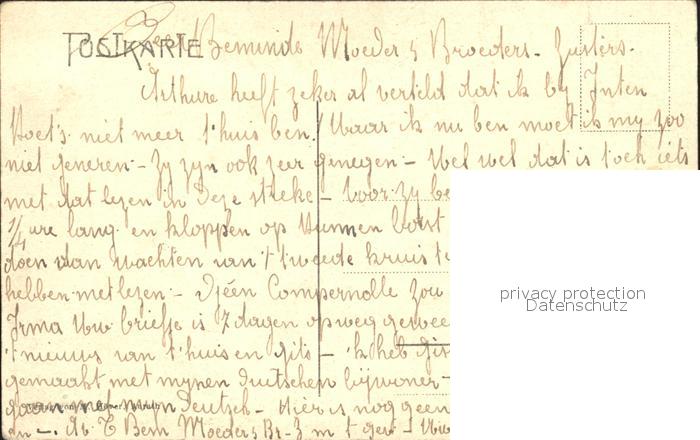 POSTKARTE
Zeer Beminde Moeder & Broeders - Zusters -
Arthure heeft zeker al verteld dat ik by Inten
Poets niet meer t'huis ben! Waar ik nu ben moet ik my zoo
niet generen - Zy zyn ook zeer genegen - Wel wel dat is toch iets
met dat lezen in deze streke - Voor zy be
1/4 ure lang en kloppen op hunnen borst
doen dan wachten van 't tweede kruis te
hebben met lezen - Djéén Compernolle zou
Irma Uw briefje is 7 dagen op weg gewee
't nieuws van t'huis en Gits - 'k heb gis
gemaakt met mynen duitschen bijwoner -
gaan met mijn Deutsch - Hier is nog geen
en - Moeder
privacy protection
Datenschutz